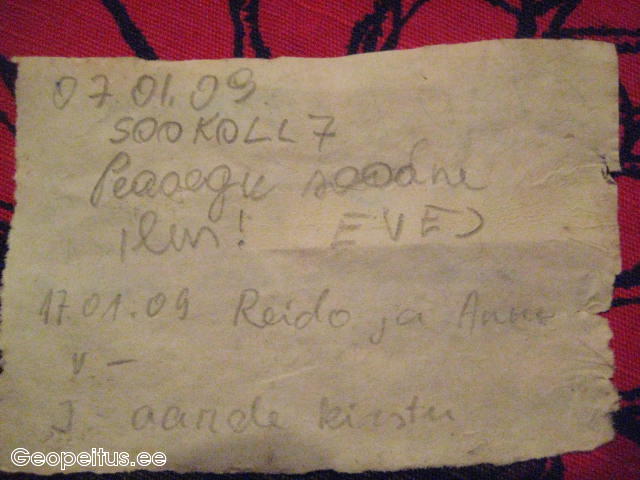 07.01.09
SOOKOLL7
Peaaegu soodne
ilm! EVEJ
17.01.09 Reido ja Anne
v. -
J aarde kirstu
Geopeitus.ee